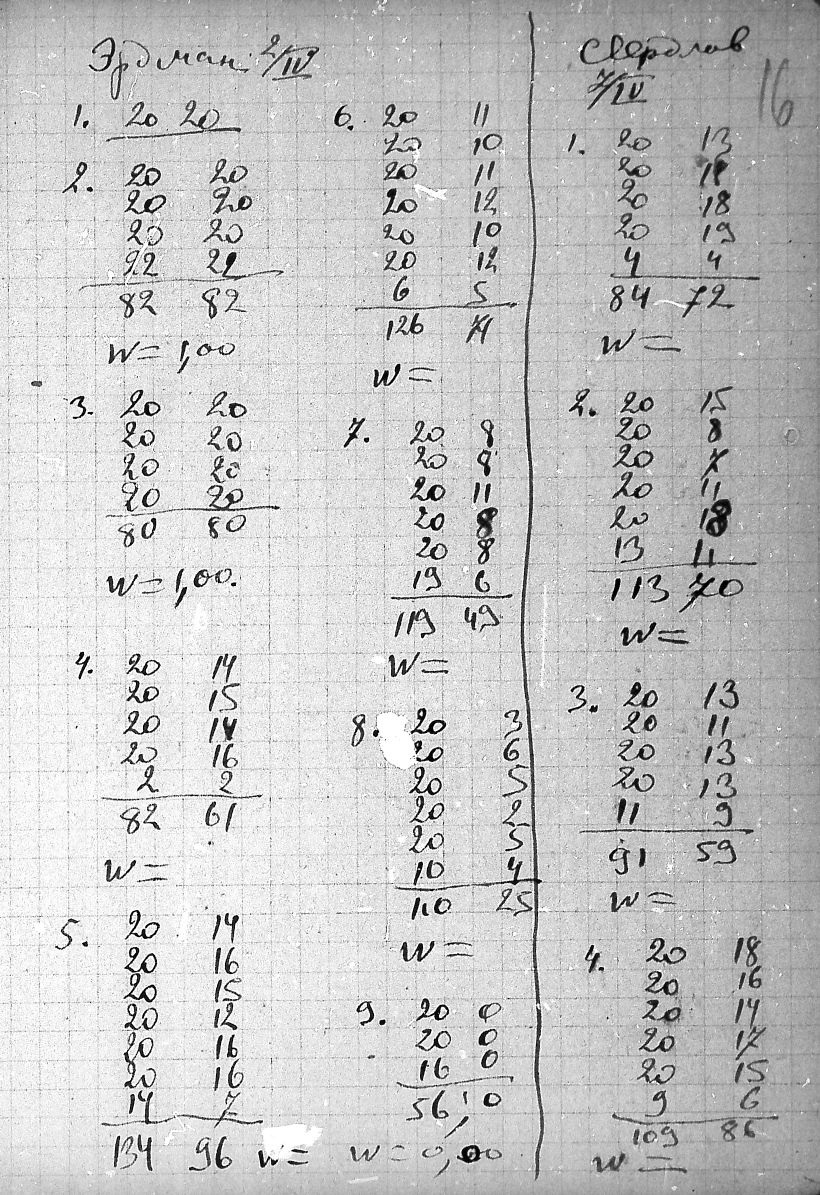 Эрдман 2/IV
1. 20 20
2. 20 20
20 20
20 20
22 22
82 82
W = 1,00
3. 20 20
20 20
20 20
20 20
80 80
W = 1,00.
4. 20 14
20 15
20 14
20 16
2 2
82 61
W =
5. 20 14
20 16
20 15
20 12
20 16
20 16
14 7
134 96 W =
6. 20 11
20 10
20 11
20 12
20 10
20 12
6 5
126 71
W =
7. 20 8
20 8
20 11
20 8
20 8
19 6
119 49
W =
8. 20 3
20 6
20 5
20 2
20 5
10 4
110 25
W =
9. 20 0
20 0
16 0
56 0
W = 0,00
16
Свердлов
7/IV
1. 20 13
20 18
20 18
20 19
4 4
84 72
W =
2. 20 15
20 8
20 7
20 11
20 18
13 11
113 70
W =
3. 20 13
20 11
20 13
20 13
11 9
91 59
W =
4. 20 18
20 16
20 14
20 17
20 15
9 6
109 86
W =